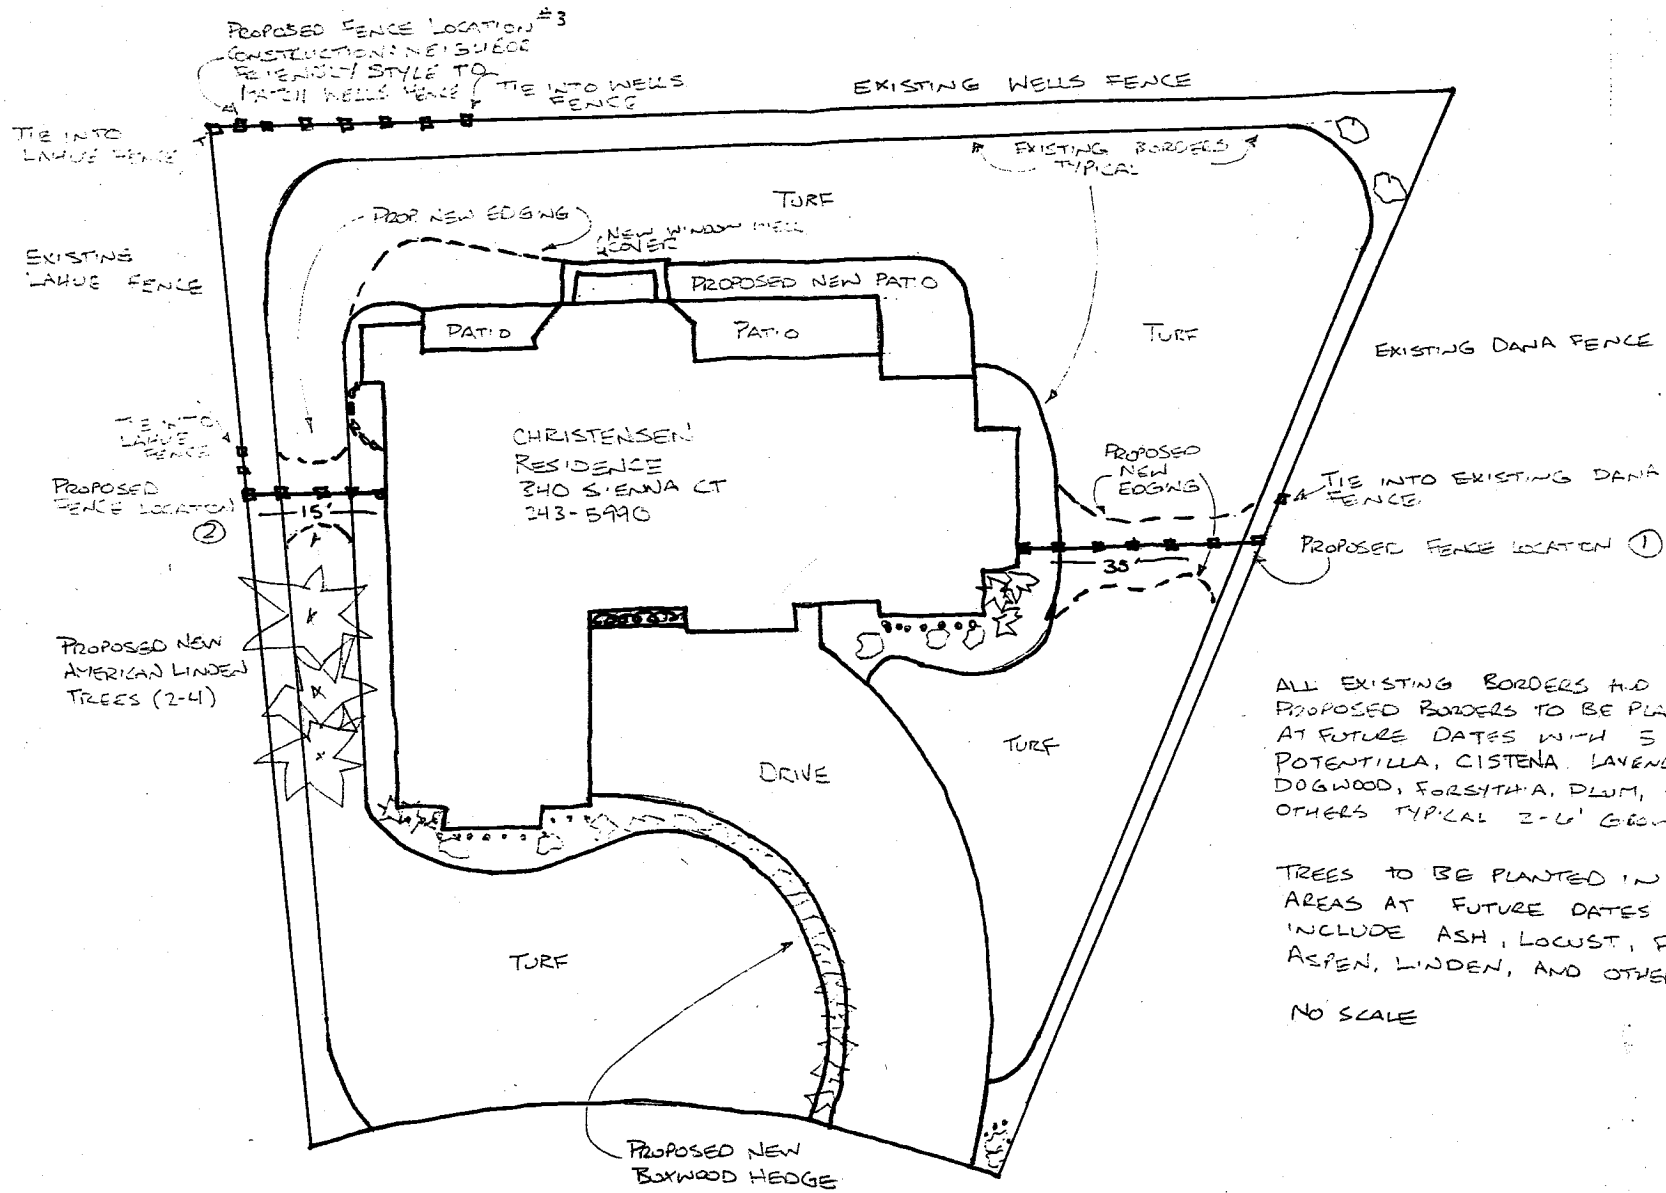 PROPOSED FENCE LOCATION #3
CONSTRUCTION: NEIGHBOR
FRIENDLY STYLE TO
MATCH WELLS FENCE
TIE INTO WELLS
FENCE
EXISTING WELLS FENCE
TIE INTO
LAHUE FENCE
EXISTING BORDERS
TYPICAL
TURF
PROP. NEW EDGING
NEW WINDOW WELL
COVER
EXISTING
LAHUE FENCE
PROPOSED NEW PATIO
PATIO
PATIO
TURF
EXISTING DANA FENCE
TIE INTO
LAHUE
FENCE
CHRISTENSEN
RESIDENCE
340 SIENNA CT
243-5990
PROPOSED
NEW
EDGING
TIE INTO EXISTING DANA
FENCE
PROPOSED
FENCE LOCATION
2
15'
PROPOSED FENCE LOCATION 1
35'
PROPOSED NEW
AMERICAN LINDEN
TREES (2-4)
ALL EXISTING BORDERS
PROPOSED BORDERS TO BE
AT FUTURE DATES WITH 5
POTENTILLA, CISTENA
DOGWOOD, FORSYTHIA, PLUM,
OTHERS TYPICAL 2-6'
TURF
DRIVE
TREES TO BE PLANTED IN
AREAS AT FUTURE DATES
INCLUDE ASH, LOCUST,
ASPEN, LINDEN, AND
TURF
NO SCALE
PROPOSED NEW
BOXWOOD HEDGE